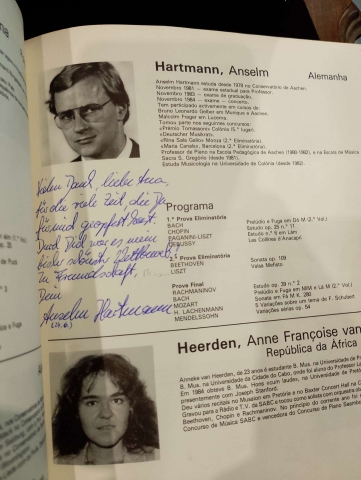 Hartmann, Anselm Alemanha
Anselm Hartmann estuda desde 1978 no Conservatório de Aachen.
Novembro 1981 — exame estadual para Professor.
Novembro 1983 — exame de graduação.
Novembro 1984 — exame — concerto.
Tem participado activamente em cursos de:
Bruno Leonardo Gelber em Munique e Aachen.
Malcolm Frager em Lucerna.
Tomou parte nos seguintes concursos:
«Prémio Tomassoni» Colónia (5.º lugar).
«Deutscher Musikrat».
«Rina Sala Gallo» Monza (2.ª Eliminatória).
«Maria Canals», Barcelona (2.ª Eliminatória).
Professor de Piano na Escola Pedagógica de Aachen (1980-1983), e na Escola de Música
Sacra S. Gregório (desde 1981).
Estuda Musicologia na Universidade de Colónia (desde 1982).
Vielen Dank, liebe Ana,
für die viele Zeit, die Du
für mich geopfert hast.
Durch Dich war es mein
bisher schönster Wettbewerb!
In Freundschaft,
Dein
Anselm Hartmann
Programa
1.ª Prova Eliminatória
BACH Prelúdio e Fuga em Dó M (2.º Vol.)
CHOPIN Estudo op. 25 n.º 11
PAGANINI-LISZT Estudo n.º 6 em Lám
DEBUSSY Les Collines d'Anacapri
2.ª Prova Eliminatória
BEETHOVEN Sonata op. 109
LISZT Valsa Mefisto
Prova Final
RACHMANINOV Estudo op. 39 n.º 2
BACH Prelúdio e Fuga em Mib M e Lá M (2.º Vol.)
MOZART Sonata em Fá M K. 280
H. LACHENMANN 5 Variações sobre um tema de F. Schubert
MENDELSSOHN Variações sérias op. 54
Heerden, Anne Françoise van
República da África
Anneke van Heerden, de 23 anos é estudante B. Mus. na
B. Mus. na Universidade da Cidade do Cabo, onde foi aluna do Professor
Em 1984 obteve B. Mus. Hons «cum laude», na Universidade de
presentemente com Joseph Stanford.
Deu vários recitais no Museion em Pretória e no Baxter Concert Hall na
Gravou para a Rádio e T.V. da SABC e tocou como solista com orquestra
Beethoven, Chopin e Rachmaninov. No princípio do corrente ano foi
Concurso de Música SABC e vencedora do Concurso de Piano